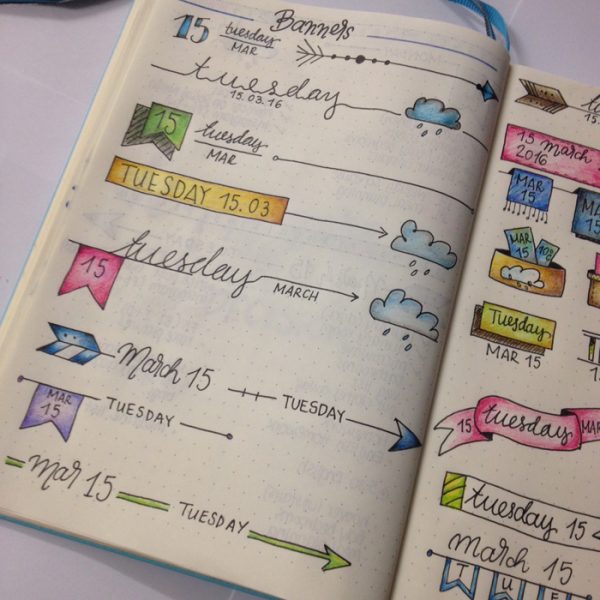 Banners
15 tuesday
MAR
tuesday
15.03.16
15 tuesday
MAR
TUESDAY 15.03
15 tuesday
MARCH
March 15 TUESDAY
MAR
15
TUESDAY
mar 15
TUESDAY
15 march
2016
MAR
15
MAR
15
MAR
15
10°C
Tuesday
MAR 15
15 tuesday MAR
tuesday 15
march 15
T U E S